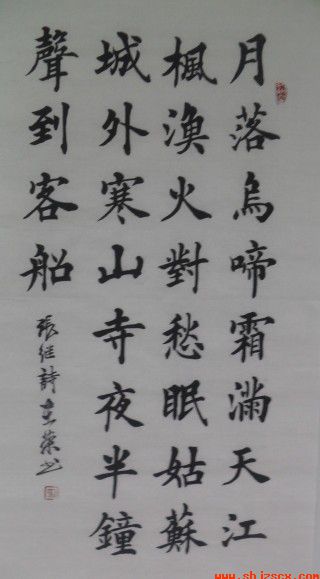 月落烏啼霜滿天江
楓漁火對愁眠姑蘇
城外寒山寺夜半鐘
聲到客船
張繼詩
www.shizscx.com